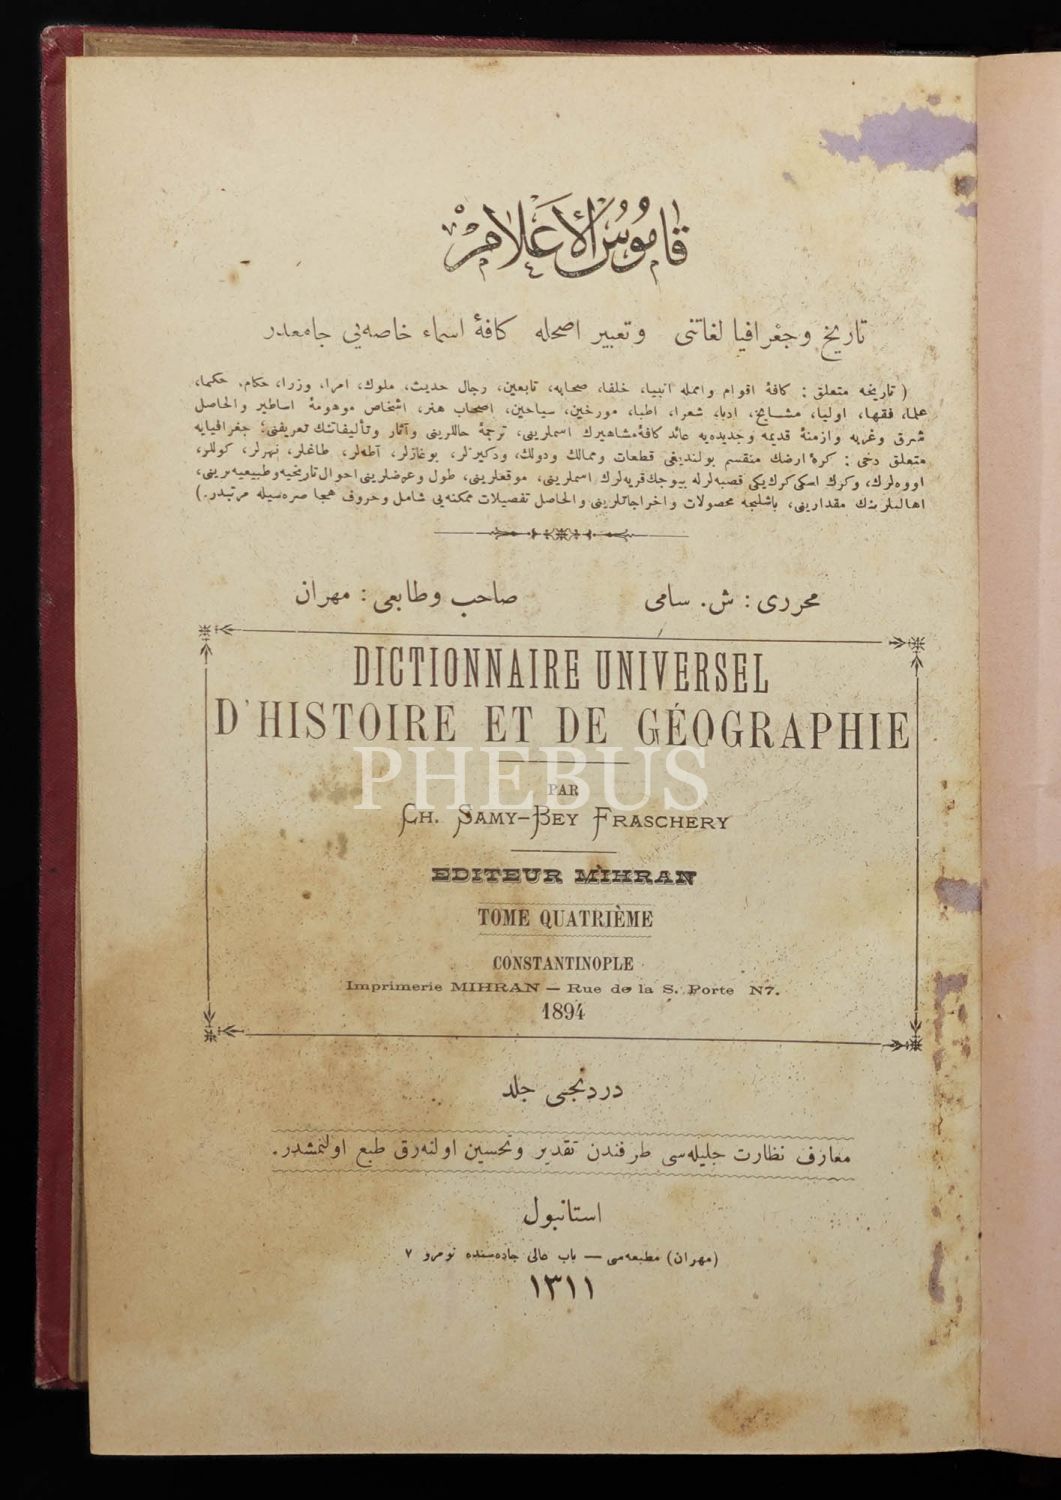 قاموس الأعلام
تاريخ وجغرافيا لغاتنى وتعبير اصحله كافهٔ اسماء خاصه‌يى جامعدر
( تاريخه متعلق : كافهٔ اقوام وامله انبيا، خلفا، صحابه، تابعين، رجال حديث، ملوك، امرا، وزرا، حكام، حكما،
علما، فقها، اوليا، مشايخ، ادبا، شعرا، اطبا، مورخين، سياحين، اصحاب هنر، اشخاص موهومهٔ اساطير والحاصل
شرق وغربه وازمنهٔ قديمه وجديده‌يه عائد كافهٔ مشاهيرك اسملرينى، ترجمهٔ حاللرينى وآثار وتأليفاتنك تعريفنى؛ جغرافيايه
متعلق دخى : كرهٔ ارضك منقسم بولنديغى قطعات وممالك ودولك، ودكيزلر، بوغازلر، آطه‌لر، طاغلر، نهرلر، كوللر،
اووه‌لرك، وكرك اسكى كرك يكى قصبه‌لرله بيوجك قريه‌لرك اسملرينى، موقعلرينى، طول وعرضلرينى احوال تاريخيه وطبيعيه‌لرينى،
اهاليلرينك مقدارينى، باشليجه محصولات واخراجاتلرينى والحاصل تفصيلات ممكنه‌يى شامل وحروف هجا صره‌سيله مرتبدر.)
محررى : ش. سامى صاحب وطابعى : مهران
DICTIONNAIRE UNIVERSEL
D'HISTOIRE ET DE GÉOGRAPHIE
PHEBUS
PAR
CH. SAMY-BEY FRASCHERY
EDITEUR MIHRAN
TOME QUATRIÈME
CONSTANTINOPLE
Imprimerie MIHRAN — Rue de la S. Porte N7.
1894
دردنجى جلد
معارف نظارت جليله‌سى طرفندن تقدير وتحسين اولنه‌رق طبع اولنمشدر.
استانبول
(مهران) مطبعه‌سى — باب عالى جاده‌سنده نومرو ٧
١٣١١